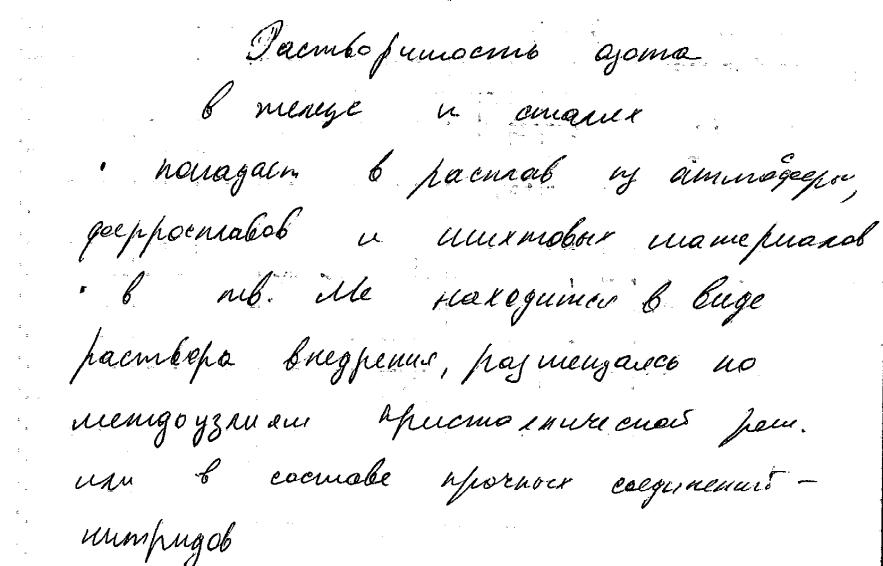 Растворимость азота
в железе и сталях
• попадает в расплав из атмосферы,
ферросплавов и шихтовых материалов
• в тв. Ме находится в виде
раствора внедрения, размещаясь по
междоузлиям кристаллической реш.
или в составе прочных соединений –
нитридов